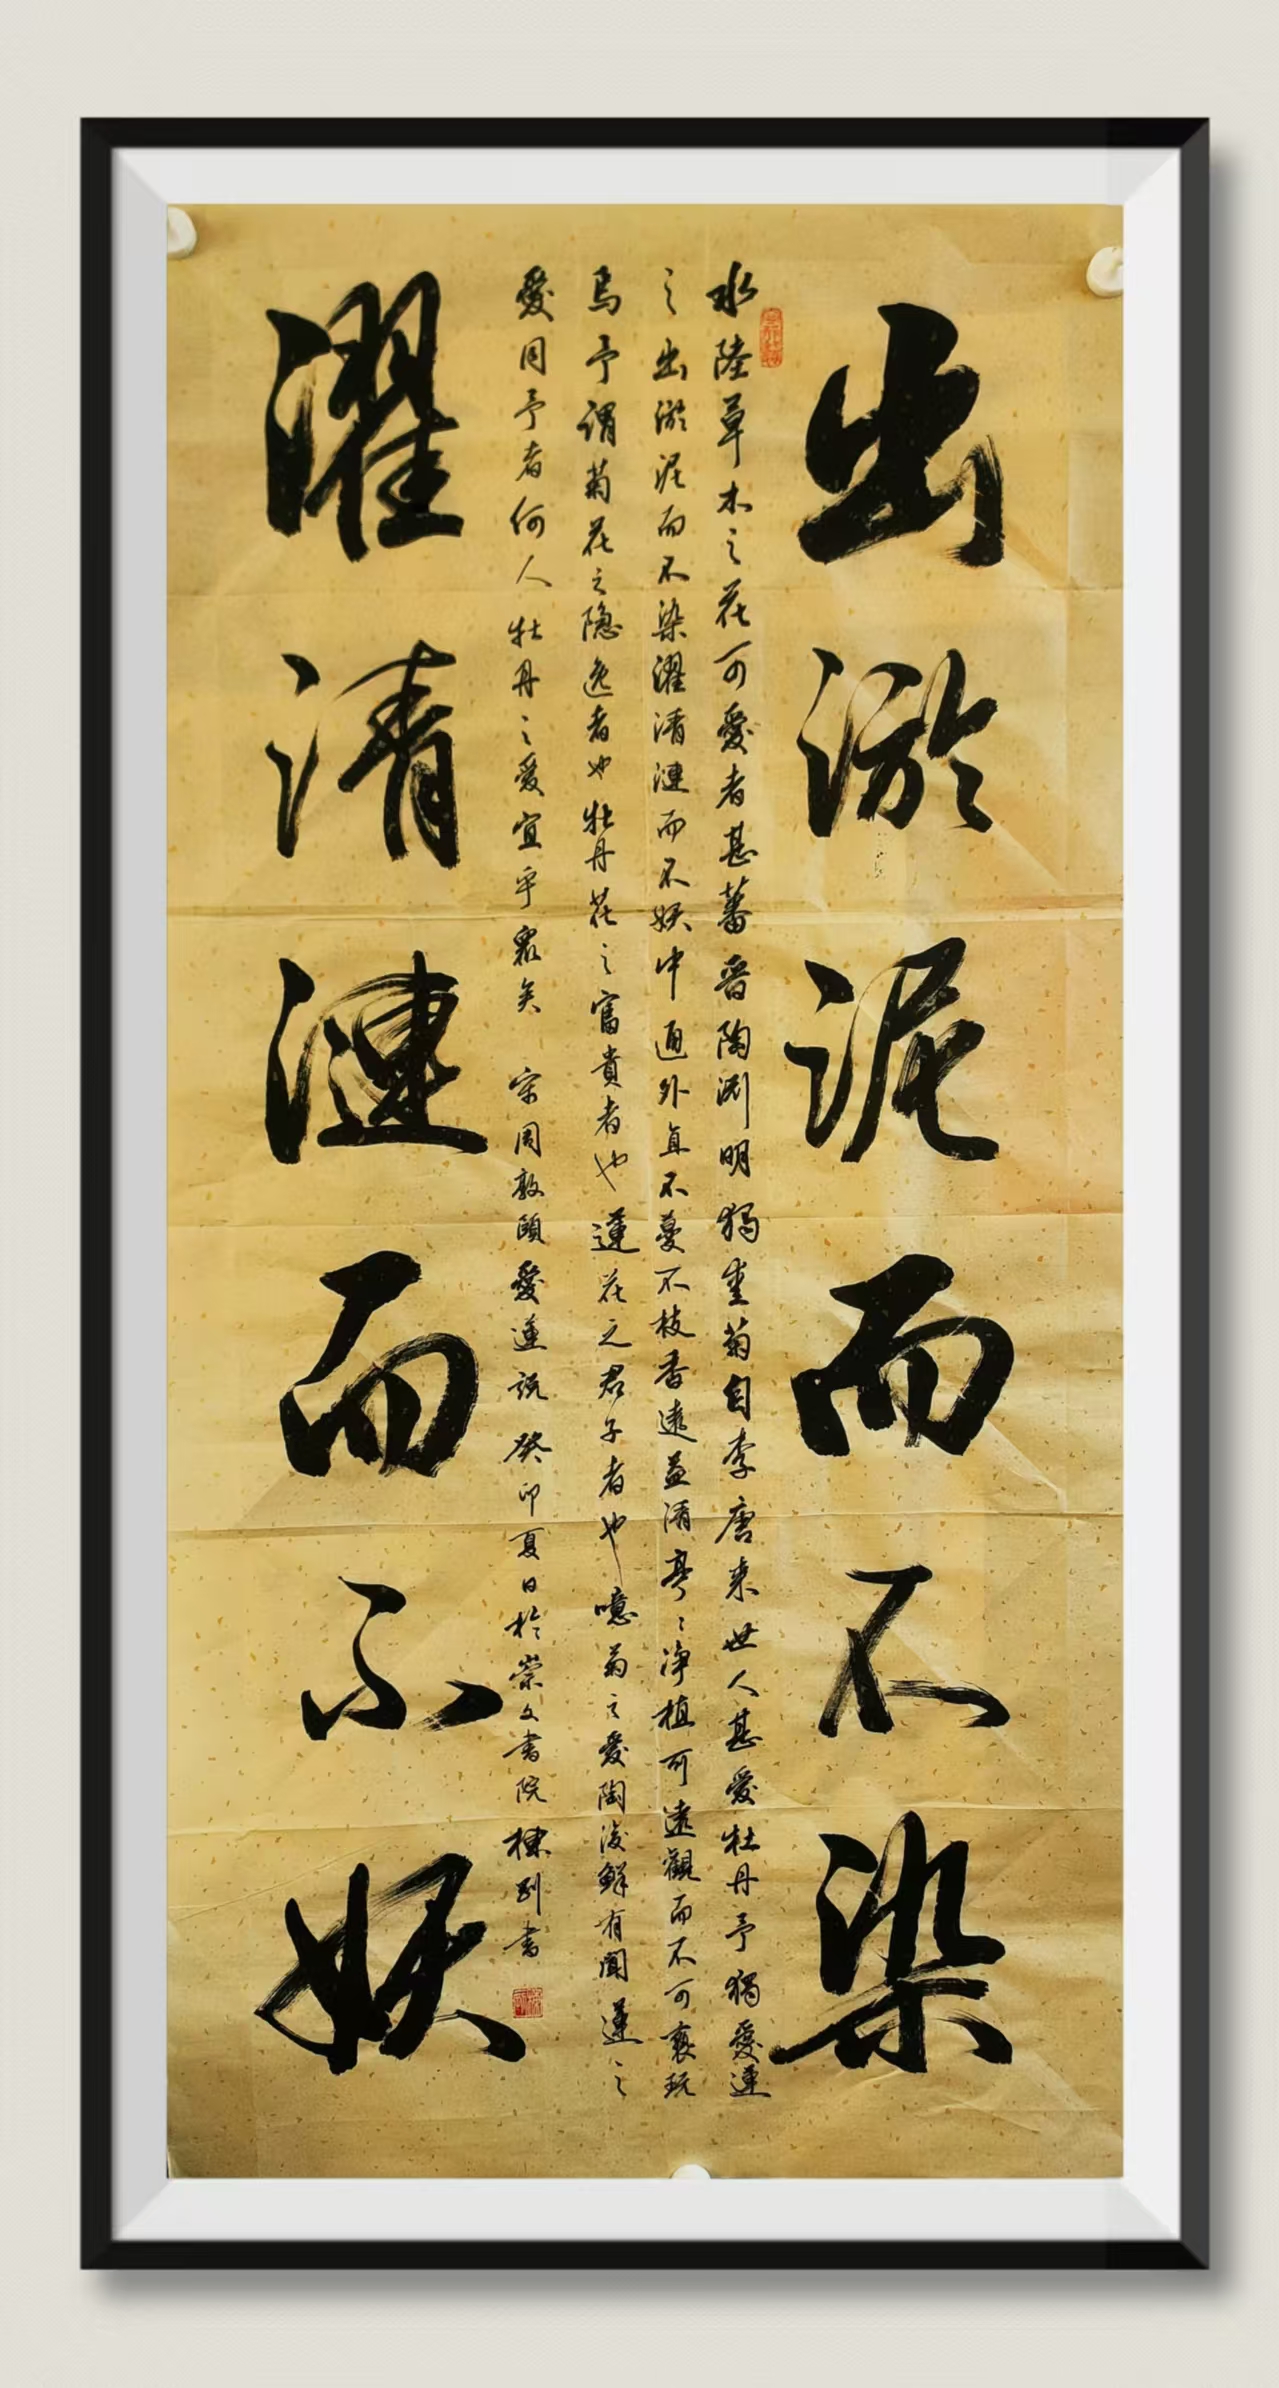 出淤泥而不染
水陸草木之花可愛者甚蕃晋陶渊明獨爱菊自李唐来世人甚愛牡丹予獨愛蓮
之出淤泥而不染濯清漣而不妖中通外直不蔓不枝香遠益清亭〻净植可遠觀而不可褻玩
焉予谓菊花之隐逸者也牡丹花之富貴者也蓮花之君子者也噫菊之愛陶後鮮有聞蓮之
愛同予者何人牡丹之爱宜乎眾矣 宋周敦頤愛蓮説 癸卯夏日於崇文書院棟剛書
濯清漣而不妖